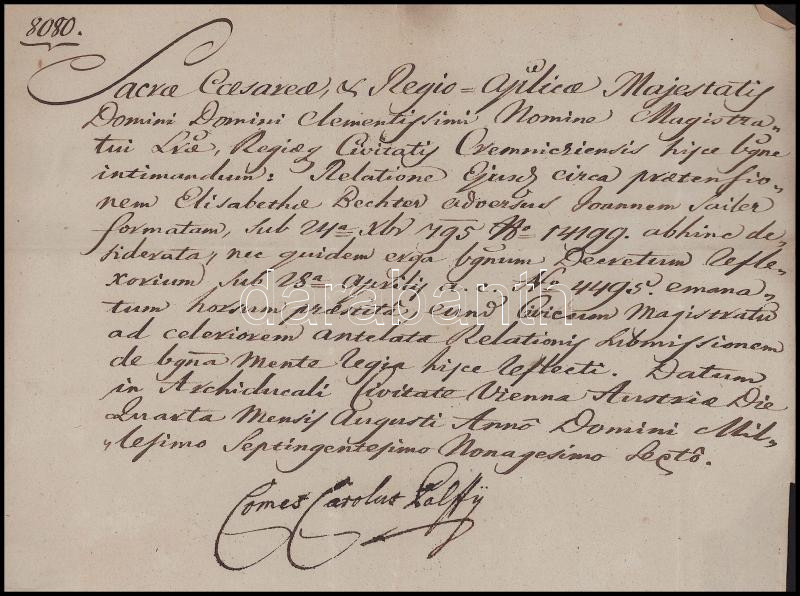 8080.
Sacræ Cæsareæ, & Regio=Aplicæ Majestatis
Domini Domini Clementissimi Nomine Magistra=
tui Lræ, Regiæq Civitatis Cremnicziensis hisce bgne
intimandum: Relatione Ejusd circa prætensio=
nem Elisabethæ Bechter adversus Joannem Sailer
formatam, sub 24a Xbr 795 No 14199. abhinc de=
siderata, nec quidem erga bgnum Decretum Refle=
xorium sub 28a Aprilis a. c. No 4495. emana=
tum horsum præstita, eund Civicum Magistratū
ad celeriorem antelata Relationis submissionem
de bgna Mente Regia hisce reflecti. Datum
in Archiducali Civitate Vienna Austriæ Die
Quarta Mensis Augusti Anno Domini Mil=
lesimo Septingentesimo Nonagesimo Sexto.
Comes Carolus Palffÿ
darabanth